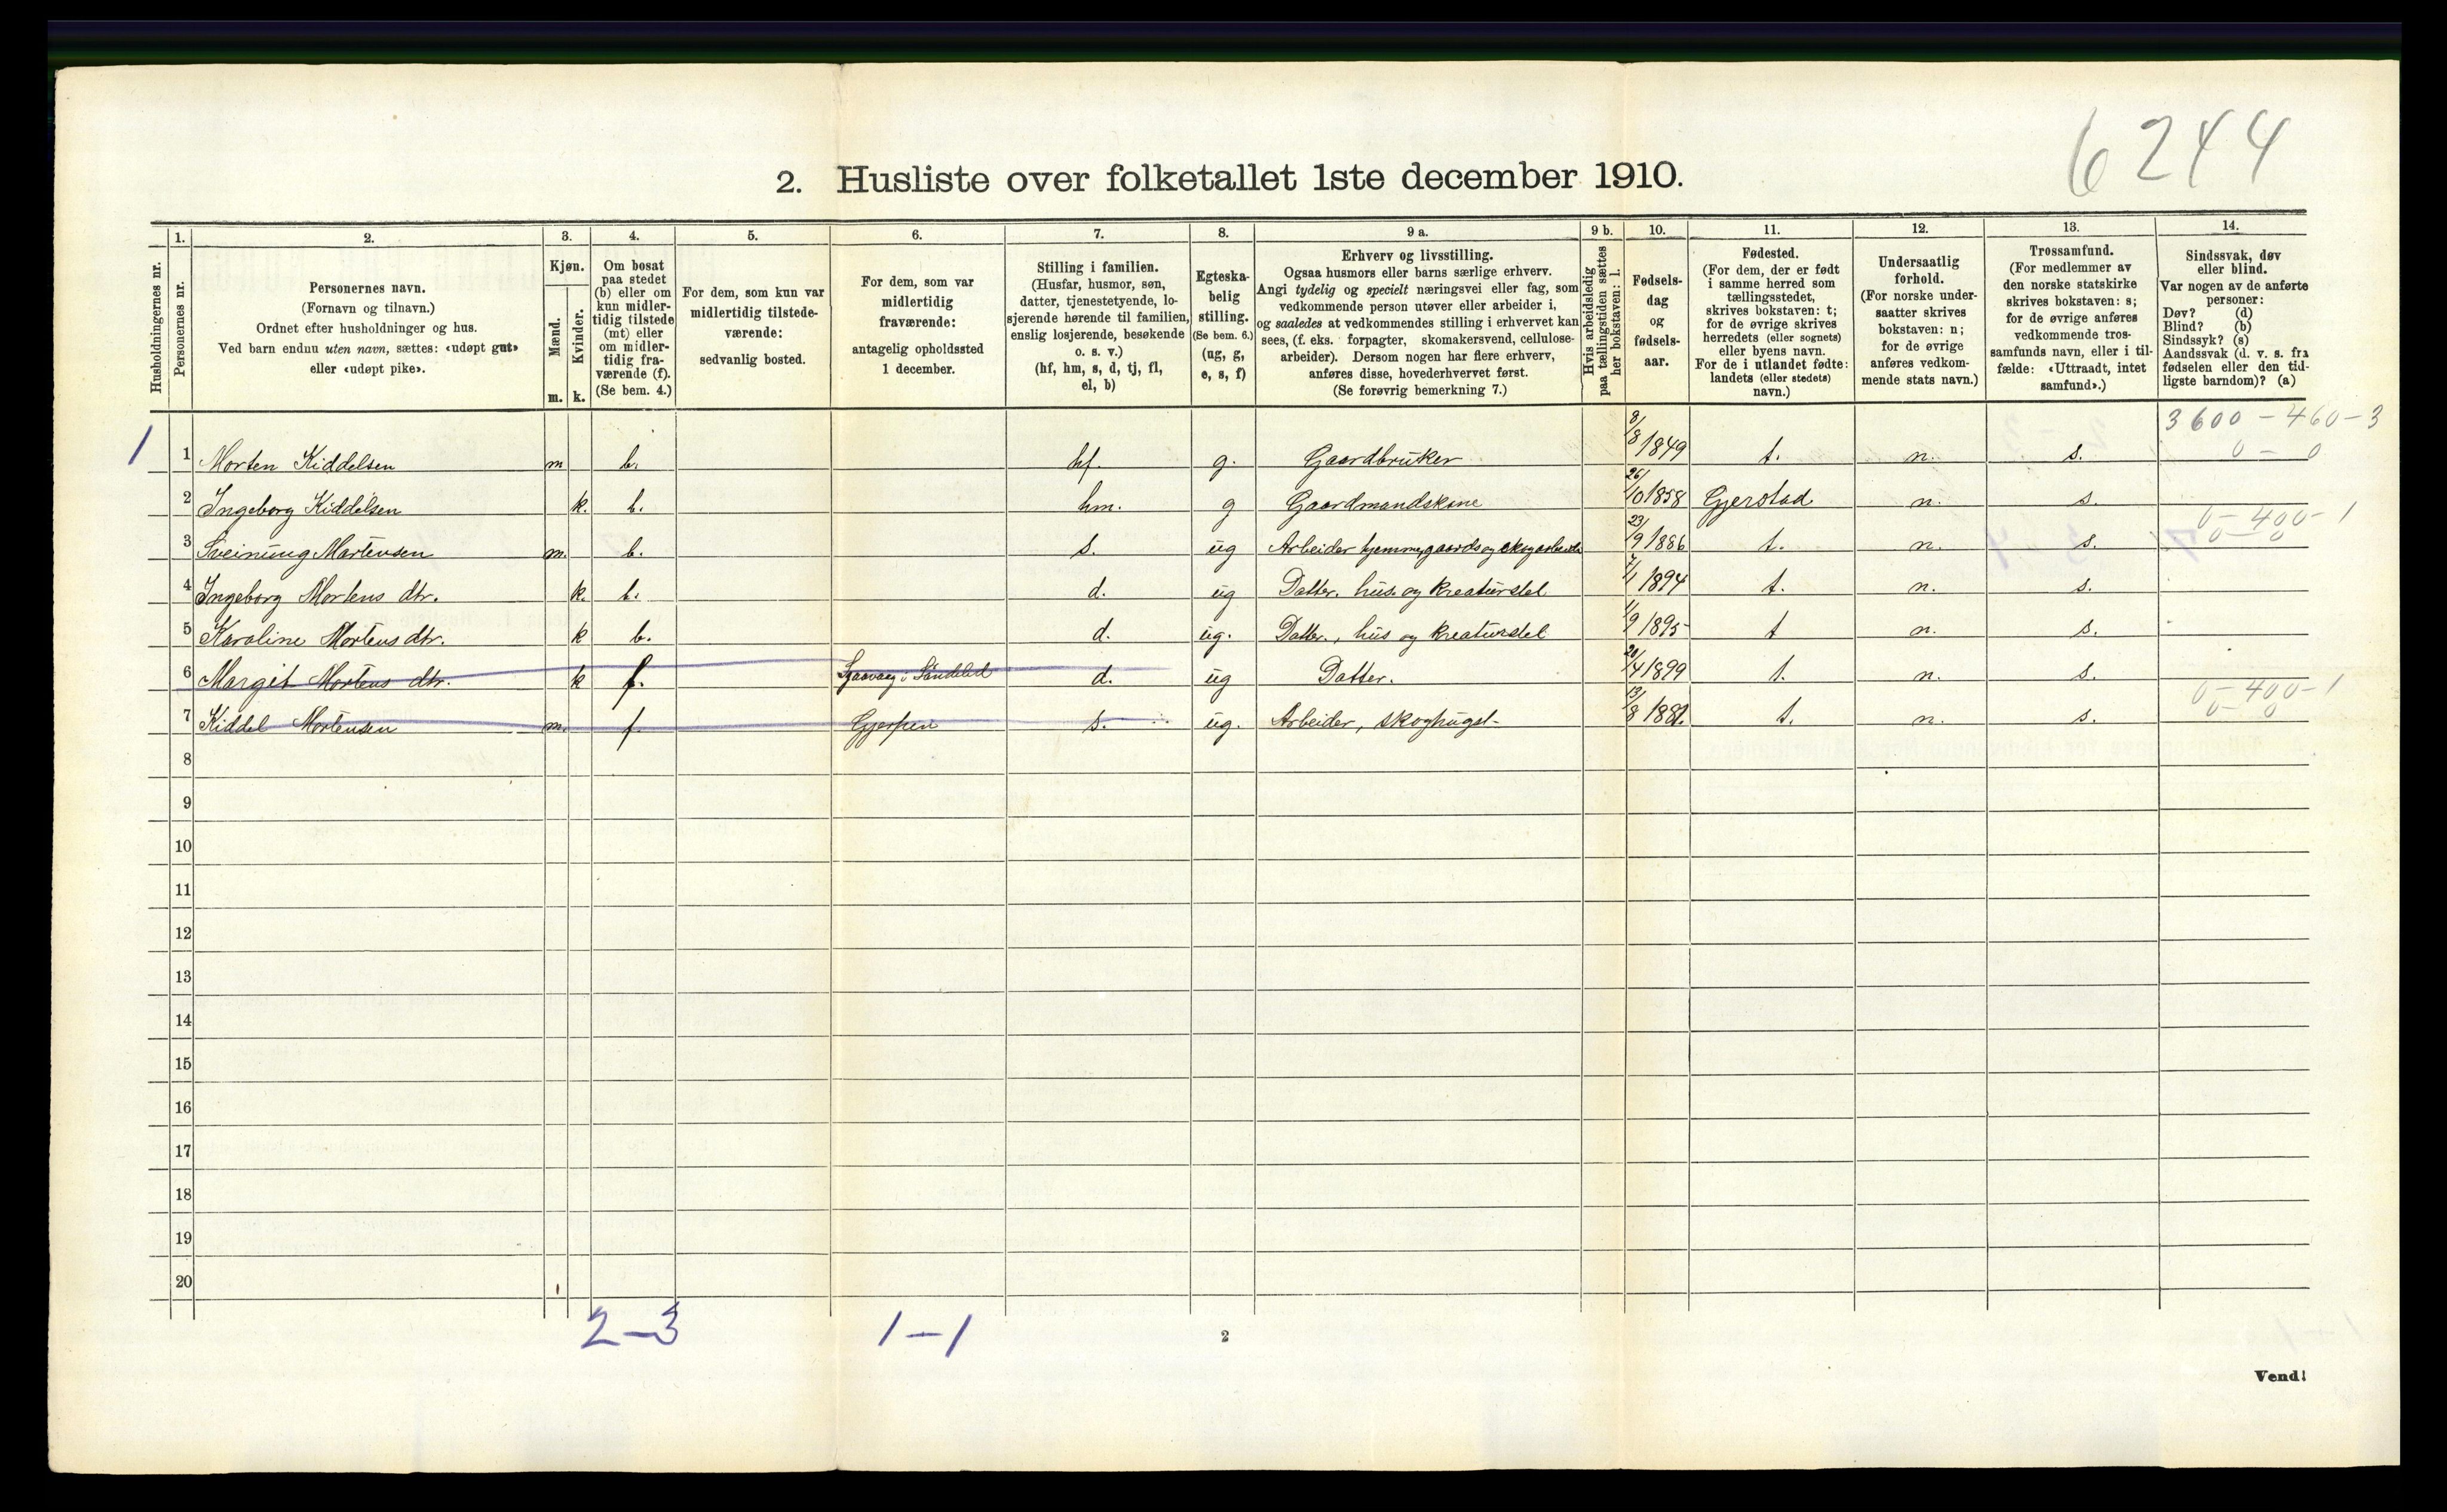 6244
2. Husliste over folketallet 1ste december 1910.
Husholdningernes nr.
1. Personernes nr.
2. Personernes navn.
(Fornavn og tilnavn.)
Ordnet efter husholdninger og hus.
Ved barn endnu uten navn, sættes: «udøpt gut»
eller «udøpt pike».
3. Kjøn.
Mænd. Kvinder.
m. k.
4. Om bosat
paa stedet
(b) eller om
kun midler-
tidig tilstede
(mt) eller
om midler-
tidig fra-
værende (f).
(Se bem. 4.)
5. For dem, som kun var
midlertidig tilstede-
værende:
sedvanlig bosted.
6. For dem, som var
midlertidig
fraværende:
antagelig opholdssted
1 december.
7. Stilling i familien.
(Husfar, husmor, søn,
datter, tjenestetyende, lo-
sjerende hørende til familien,
enslig losjerende, besøkende
o. s. v.)
(hf, hm, s, d, tj, fl,
el, b)
8. Egteska-
belig
stilling.
(Se bem. 6.)
(ug, g,
e, s, f)
9 a. Erhverv og livsstilling.
Ogsaa husmors eller barns særlige erhverv.
Angi tydelig og specielt næringsvei eller fag, som
vedkommende person utøver eller arbeider i,
og saaledes at vedkommendes stilling i erhvervet kan
sees, (f. eks. forpagter, skomakersvend, cellulose-
arbeider). Dersom nogen har flere erhverv,
anføres disse, hovederhvervet først.
(Se forøvrig bemerkning 7.)
9 b. Hvis arbeidsledig
paa tællingstiden sættes
her bokstaven: l.
10. Fødsels-
dag
og
fødsels-
aar.
11. Fødested.
(For dem, der er født
i samme herred som
tællingsstedet,
skrives bokstaven: t;
for de øvrige skrives
herredets (eller sognets)
eller byens navn.
For de i utlandet fødte:
landets (eller stedets)
navn.)
12. Undersaatlig
forhold.
(For norske under-
saatter skrives
bokstaven: n;
for de øvrige
anføres vedkom-
mende stats navn.)
13. Trossamfund.
(For medlemmer av
den norske statskirke
skrives bokstaven: s;
for de øvrige anføres
vedkommende tros-
samfunds navn, eller i til-
fælde: «Uttraadt, intet
samfund».)
14. Sindssvak, døv
eller blind.
Var nogen av de anførte
personer:
Døv? (d)
Blind? (b)
Sindssyk? (s)
Aandssvak (d. v. s. fra
fødselen eller den tid-
ligste barndom)? (a)
3600 - 460 - 3
1 1 Morten Kiddelsen m b. hf. g. Gaardbruker 8/8 1849 t. n. s. 0 - 0
2 Ingeborg Kiddelsen k. b. hm. g Gaardmandskone 26/10 1858 Gjerstad n. s.
0 - 400 - 1
3 Sveinung Martensen m. b. s. ug Arbeider hjemme, gaards og skogarbeide 23/9 1886 t. n. s. 0 - 0
4 Ingeborg Mortens dtr. k. b. d. ug Datter. hus og kreaturstel 7/1 1894 t. n. s.
5 Karoline Mortens dtr. k b. d. ug. Datter., hus og kreaturstel 1/9 1895 t n. s.
6 Margit Mortens dtr. k f. i Søndeled d. ug Datter. 20/4 1899 t. n. s.
0 - 400 - 1
7 Kiddel Mortensen m. f. Gjerpen s. ug. Arbeider, skoghugst 13/8 t. n. s. 0 - 0
8
9
10
11
12
13
14
15
16
17
18
19
20
2-3 1-1
2
Vend!